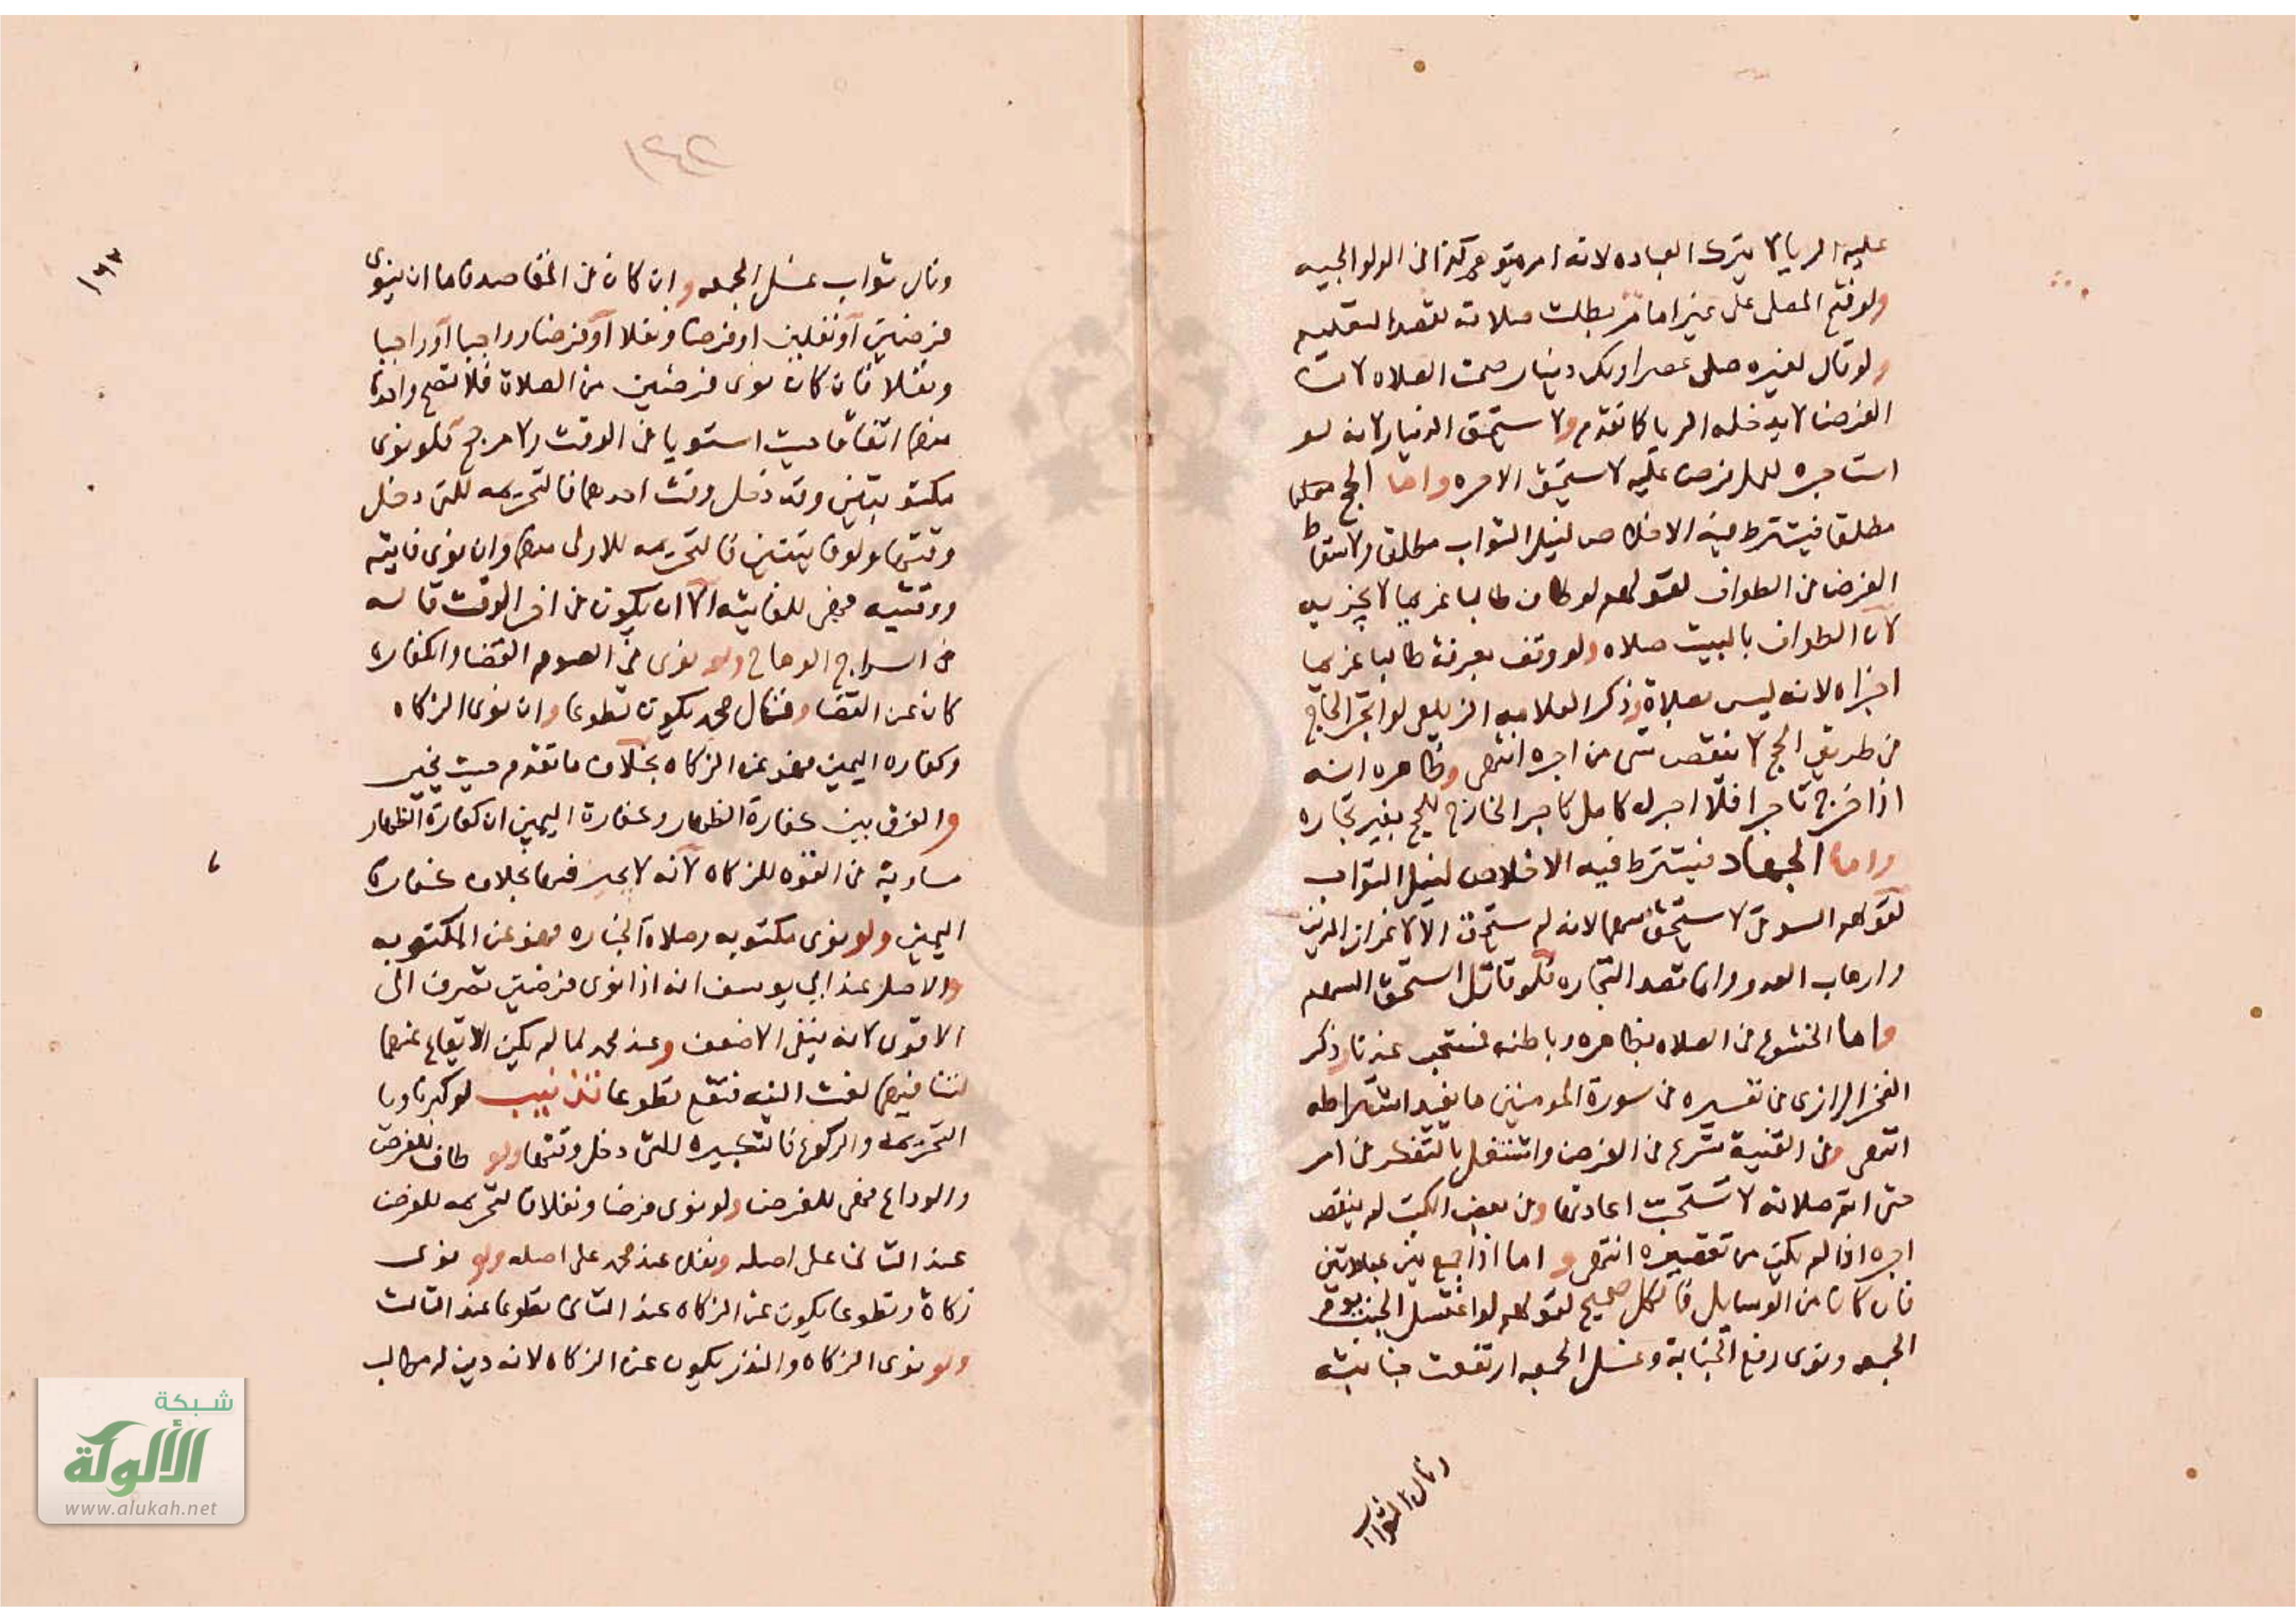 عليه الريا لا يترك العباده لانه امر متوهم كذا في الولوالجيه
ولو فتح المصلي على غير امامه بطلت صلاته لقصد التعليم
ولو قال لغيره صلي عصرا ولك دينار صحت الصلاه لان
الفرض لا يدخله الريا كما تقدم ولا يستحق الدنيار لانه لو
استاجره للفرض عليه لا يستحق الاجره واما الحج
مطلقا فيشترط فيه الاخلاص لنيل الثواب مطلقا ولاسقاط
الفرض من الطواف لقولهم لو طاف طالبا غريما لا يجزيه
لان الطواف بالبيت صلاه ولو وقف بعرفة طالبا غريما
اجزاه لانه ليس بصلاة وذكر العلامه الزيلعي لو اتجر الحاج
في طريق الحج لا ينقص شي من اجره انتهى وظاهره انه
اذا خرج تاجرا فلا اجر له كامل كاجر الخارج للحج بغير تجاره
واما الجهاد فيشترط فيه الاخلاص لنيل الثواب
لقولهم السوقي لا يستحق سهما لانه لم يستحق الا لاعزاز الدين
وارهاب العدو وانما قصد التجاره فلو قاتل استحق السهم
واما الخشوع في الصلاه بظاهره وباطنه فمستحب عندنا وذكر
الفخر الرازي في تفسيره في سورة المومنين ما يفيد اشتراطه
انتهى وفي القنية شرع في الفرض واشتغل بالتفكر في امر
حتى اتم صلاته لا تستحب اعادتها وفي بعض الكتب لم ينقص
اجره اذا لم يكن من تقصيره انتهى و اما اذا جمع بين عبادتين
فان كان من الوسايل فالكل صحيح لقولهم لو اغتسل الجنب يوم
الجمعه ونوى رفع الجنابة وغسل الجمعه ارتفعت جنابته
ونال الثواب
١٤٢
١٤٢
ونال ثواب غسل الجمعه وان كان في المقاصد فاما ان ينوي
فرضين او نفلين او فرضا ونفلا او فرضا وواجبا او واجبا
ونفلا فان كان نوى فرضين من الصلاة فلا تصح واحدة
منهما اتفاقا حيث استويا في الوقت ولا مرجح فلو نوى
مكتوبتين وقد دخل وقت احدهما فالتحريمه للتي دخل
وقتها ولو فايتتين فالتحريمه للاولى منهما وان نوى فايته
ووقتيه فهي للفايته الا ان يكون في اخر الوقت قاله
في السراج الوهاج ولو نوى في الصوم القضا والكفارة
كان عن القضا وقال محمد يكون تطوعا وان نوى الزكاه
وكفاره اليمين فهو عن الزكاه بخلاف ما تقدم حيث يخير
والفرق بين كفارة الظهار وكفارة اليمين ان كفارة الظهار
مساوية في القوه للزكاه لانه لا يجبر فيها بخلاف كفارة
اليمين ولو نوى مكتوبه وصلاة الجنازه فهو عن المكتوبه
والاصل عند ابي يوسف انه اذا نوى فرضين تصرف الى
الاقوى لانه ينفي الاضعف وعند محمد لما لم يكن الايقاع عنهما
لتنافيهما لغت النيه فتقع تطوعا تذنيب لو كبر ناويا
التحريمه والركوع فالتكبيره للتي دخل وقتها ولو طاف للفرض
والوداع فهي للفرض ولو نوى فرضا ونفلا فالتحريمه للفرض
عند الثاني على اصله ونفل عند محمد على اصله ولو نوى
زكاة وتطوعا يكون عن الزكاه عند الثاني تطوعا عند الثالث
ولو نوى الزكاه والنذر يكون عن الزكاه لانه دين له مطالب
شبكة
الألوكة
www.alukah.net